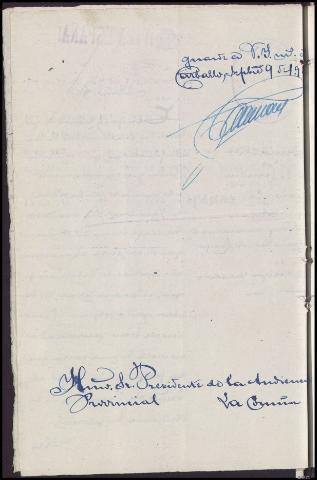 guarde a V.I. m.
Carballo, Septbre 9 de 19
Iltmo. Sr. Presidente de la Audien
Provincial La Coruña